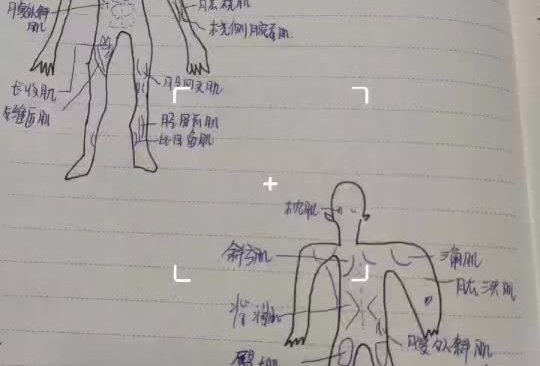 腹外斜
肌
肱桡肌
桡侧腕屈肌
长收肌
缝匠肌
股四头肌
胫骨前肌
比目鱼肌
枕肌
斜方肌
三角肌
肱三头肌
背阔肌
腹外斜肌